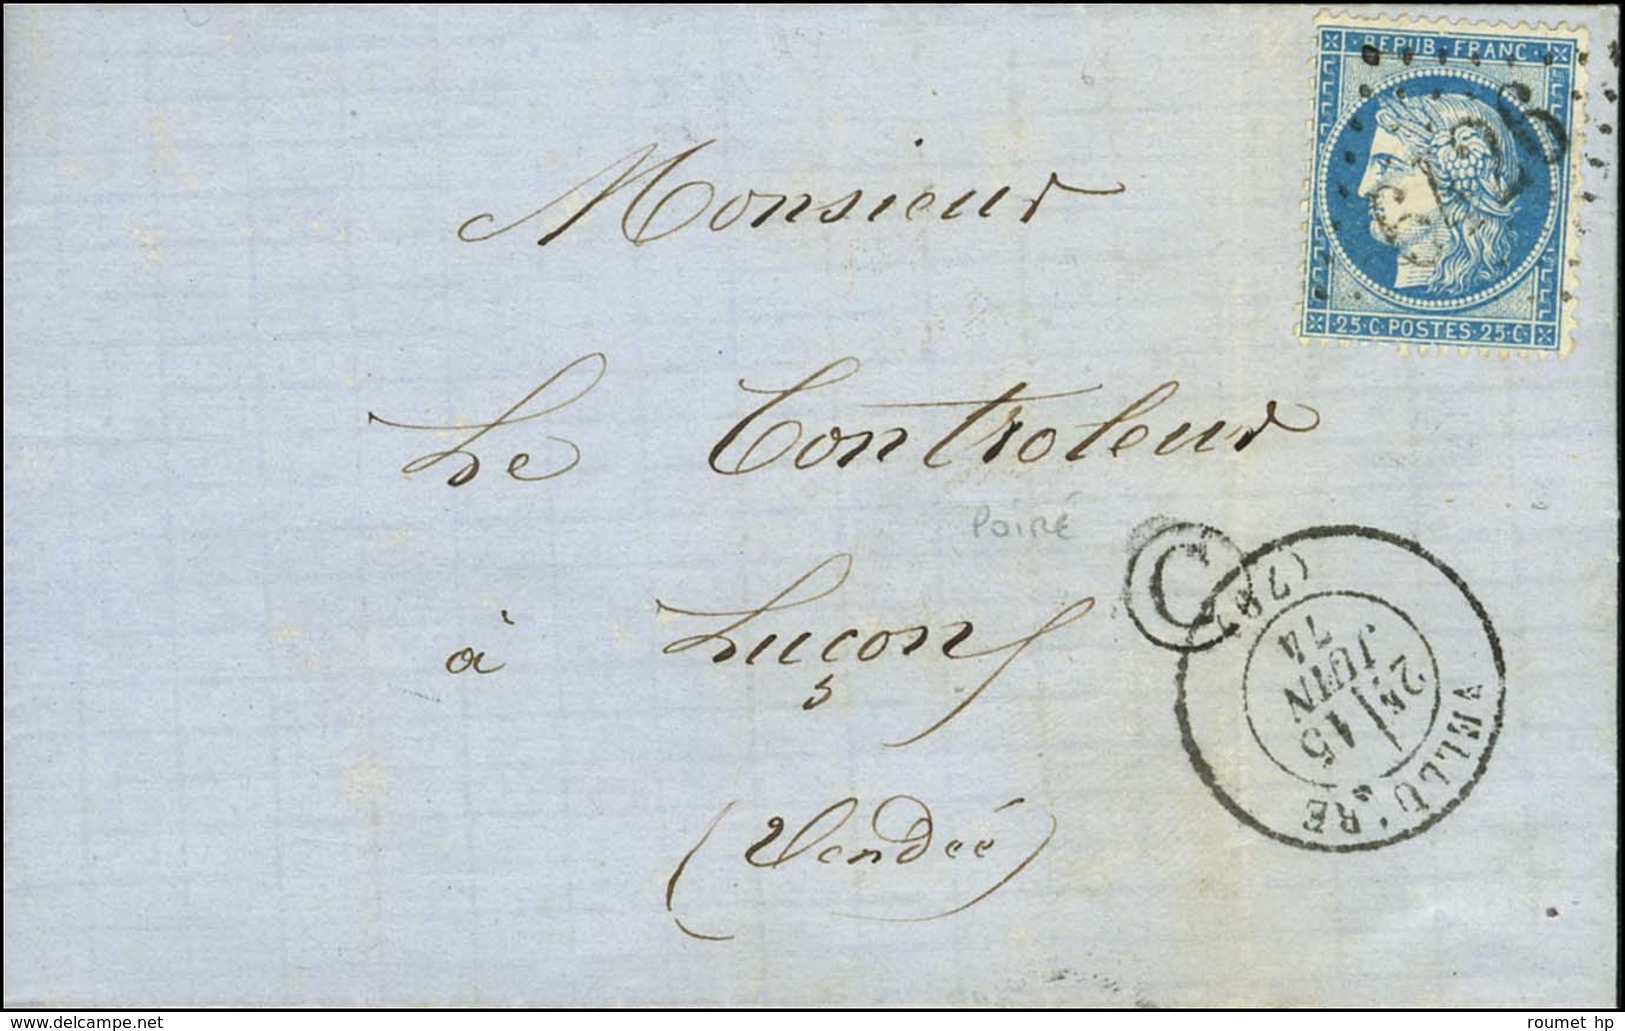 REPUB·FRANC·
6426
25·C·POSTES·25·C·
Monsieur
Le Controleur
POIRÉ
C
à Luçon
(Vendée)
VELLUIRE
(78)
2E
15
JUIN
74
delcampe.net
roumet hp